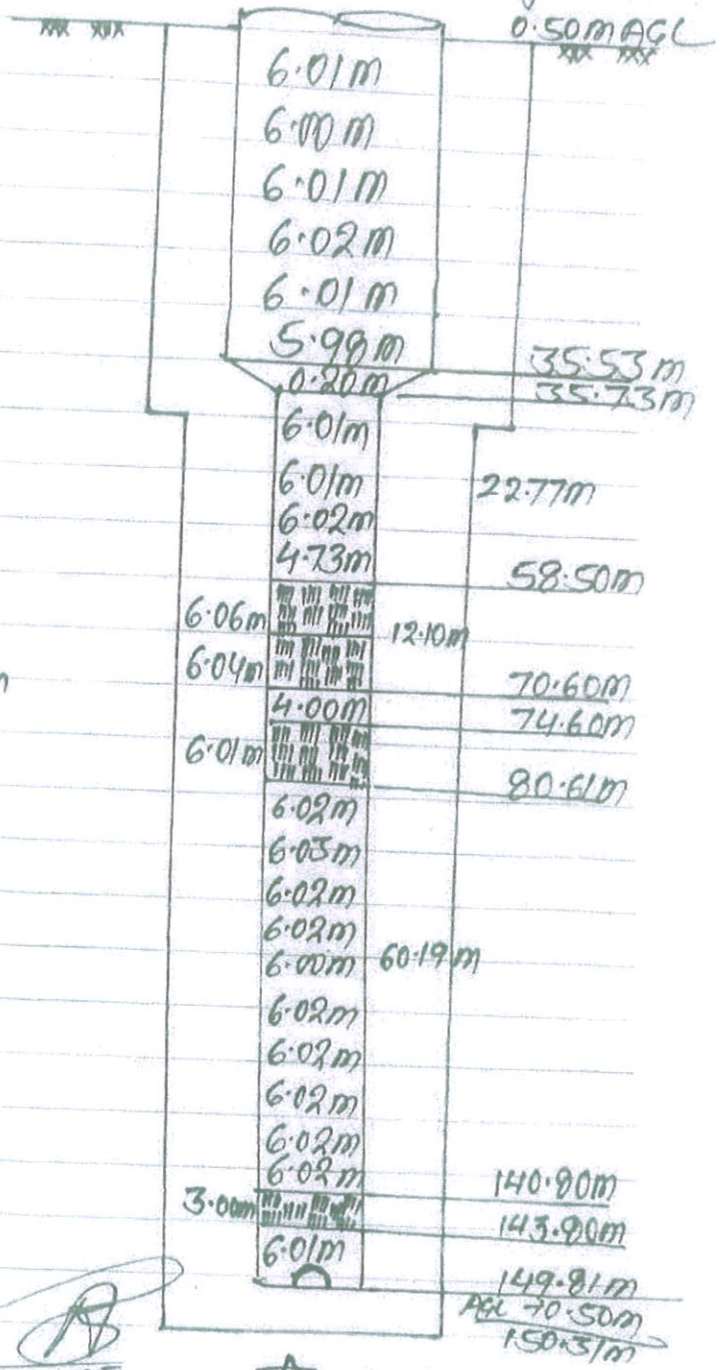 0.50m AGL
6.01m
6.00m
6.01m
6.02m
6.01m
5.98m
35.53m
0.20m
35.73m
6.01m
6.01m
22.77m
6.02m
4.73m
58.50m
6.06m
12.10m
6.04m
70.60m
4.00m
74.60m
6.01m
80.61m
6.02m
6.03m
6.02m
6.02m
6.00m
60.19m
6.02m
6.02m
6.02m
6.02m
6.02m
140.80m
3.00m
143.80m
6.01m
149.81m
AGL +0.50m
150.31m